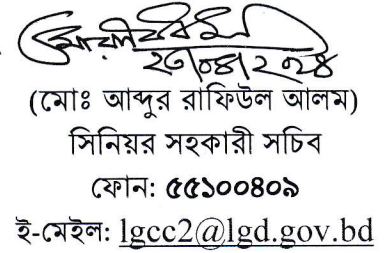 ২৩/০৪/২০২৪
(মোঃ আব্দুর রাফিউল আলম)
সিনিয়র সহকারী সচিব
ফোন: ৫৫১০০৪০৯
ই-মেইল: lgcc2@lgd.gov.bd